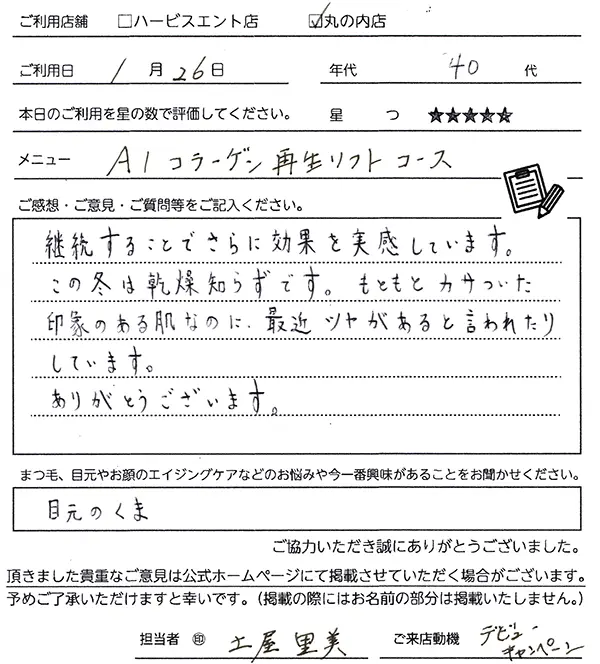 ご利用店舗 □ハービスエント店 ☑丸の内店
ご利用日 1月26日 年代 40代
本日のご利用を星の数で評価してください。 星 つ ★★★★★
メニュー AIコラーゲン再生リフトコース
ご感想・ご意見・ご質問等をご記入ください。
継続することでさらに効果を実感しています。
この冬は乾燥知らずです。もともとカサついた
印象のある肌なのに、最近ツヤがあると言われたり
しています。
ありがとうございます。
まつ毛、目元やお顔のエイジングケアなどのお悩みや今一番興味があることをお聞かせください。
目元のくま
ご協力いただき誠にありがとうございました。
頂きました貴重なご意見は公式ホームページにて掲載させていただく場合がございます。
予めご了承いただけますと幸いです。（掲載の際にはお名前の部分は掲載いたしません。）
担当者 ㊞ 土屋里美 ご来店動機 デビューキャンペーン